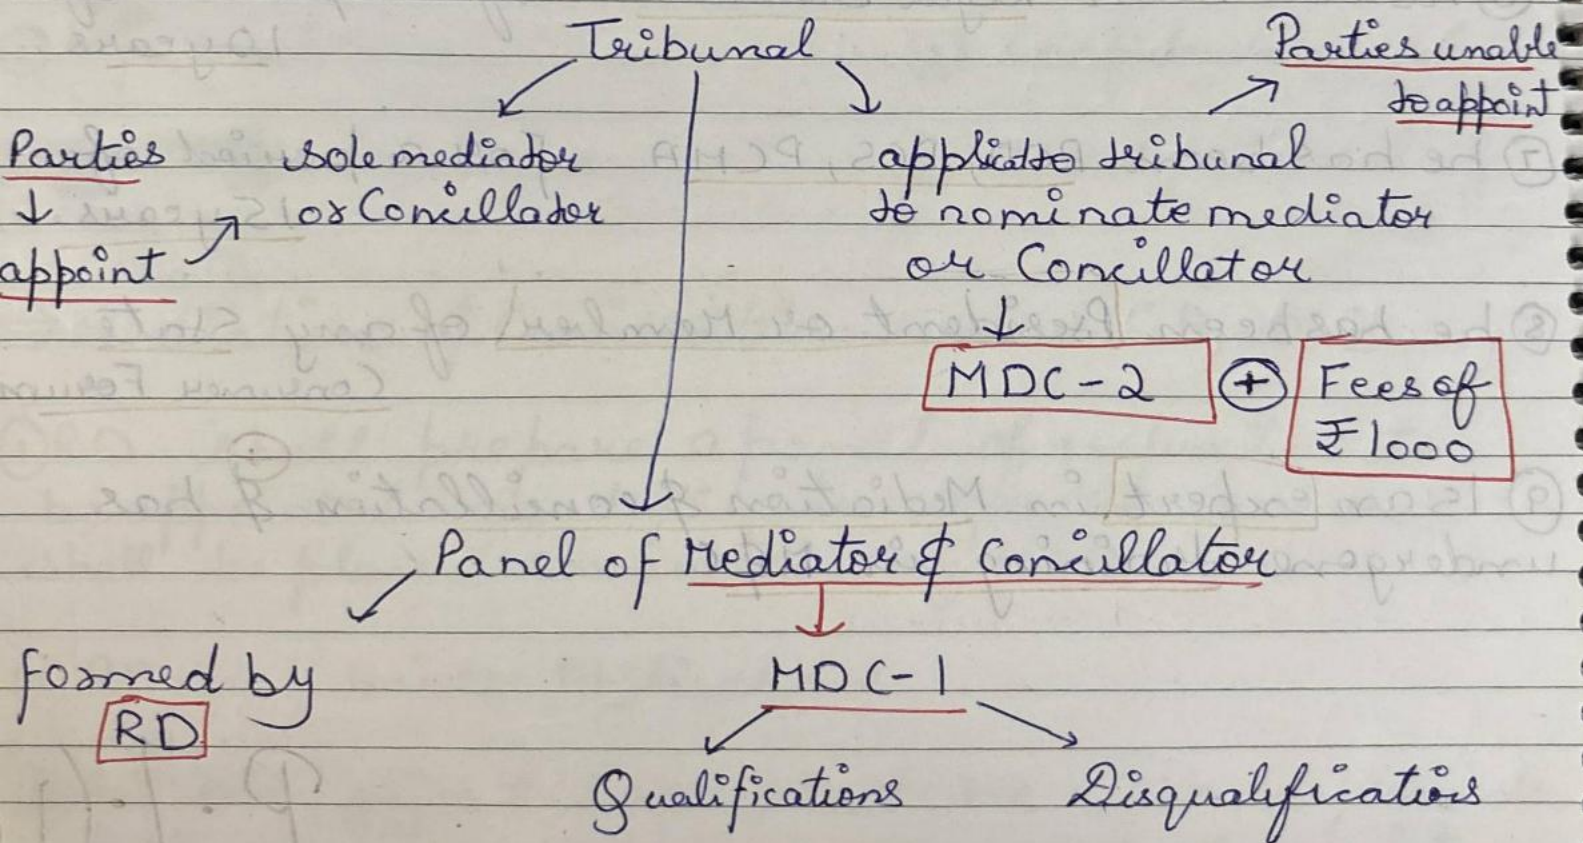 Tribunal
Parties unable
to appoint
Parties
↓
appoint
sole mediator
or Concillator
applicatto tribunal
to nominate mediator
or Concillator
MDC-2 + Fees of
₹1000
Panel of Mediator & Concillator
formed by
RD
MDC-1
Qualifications
Disqualifications